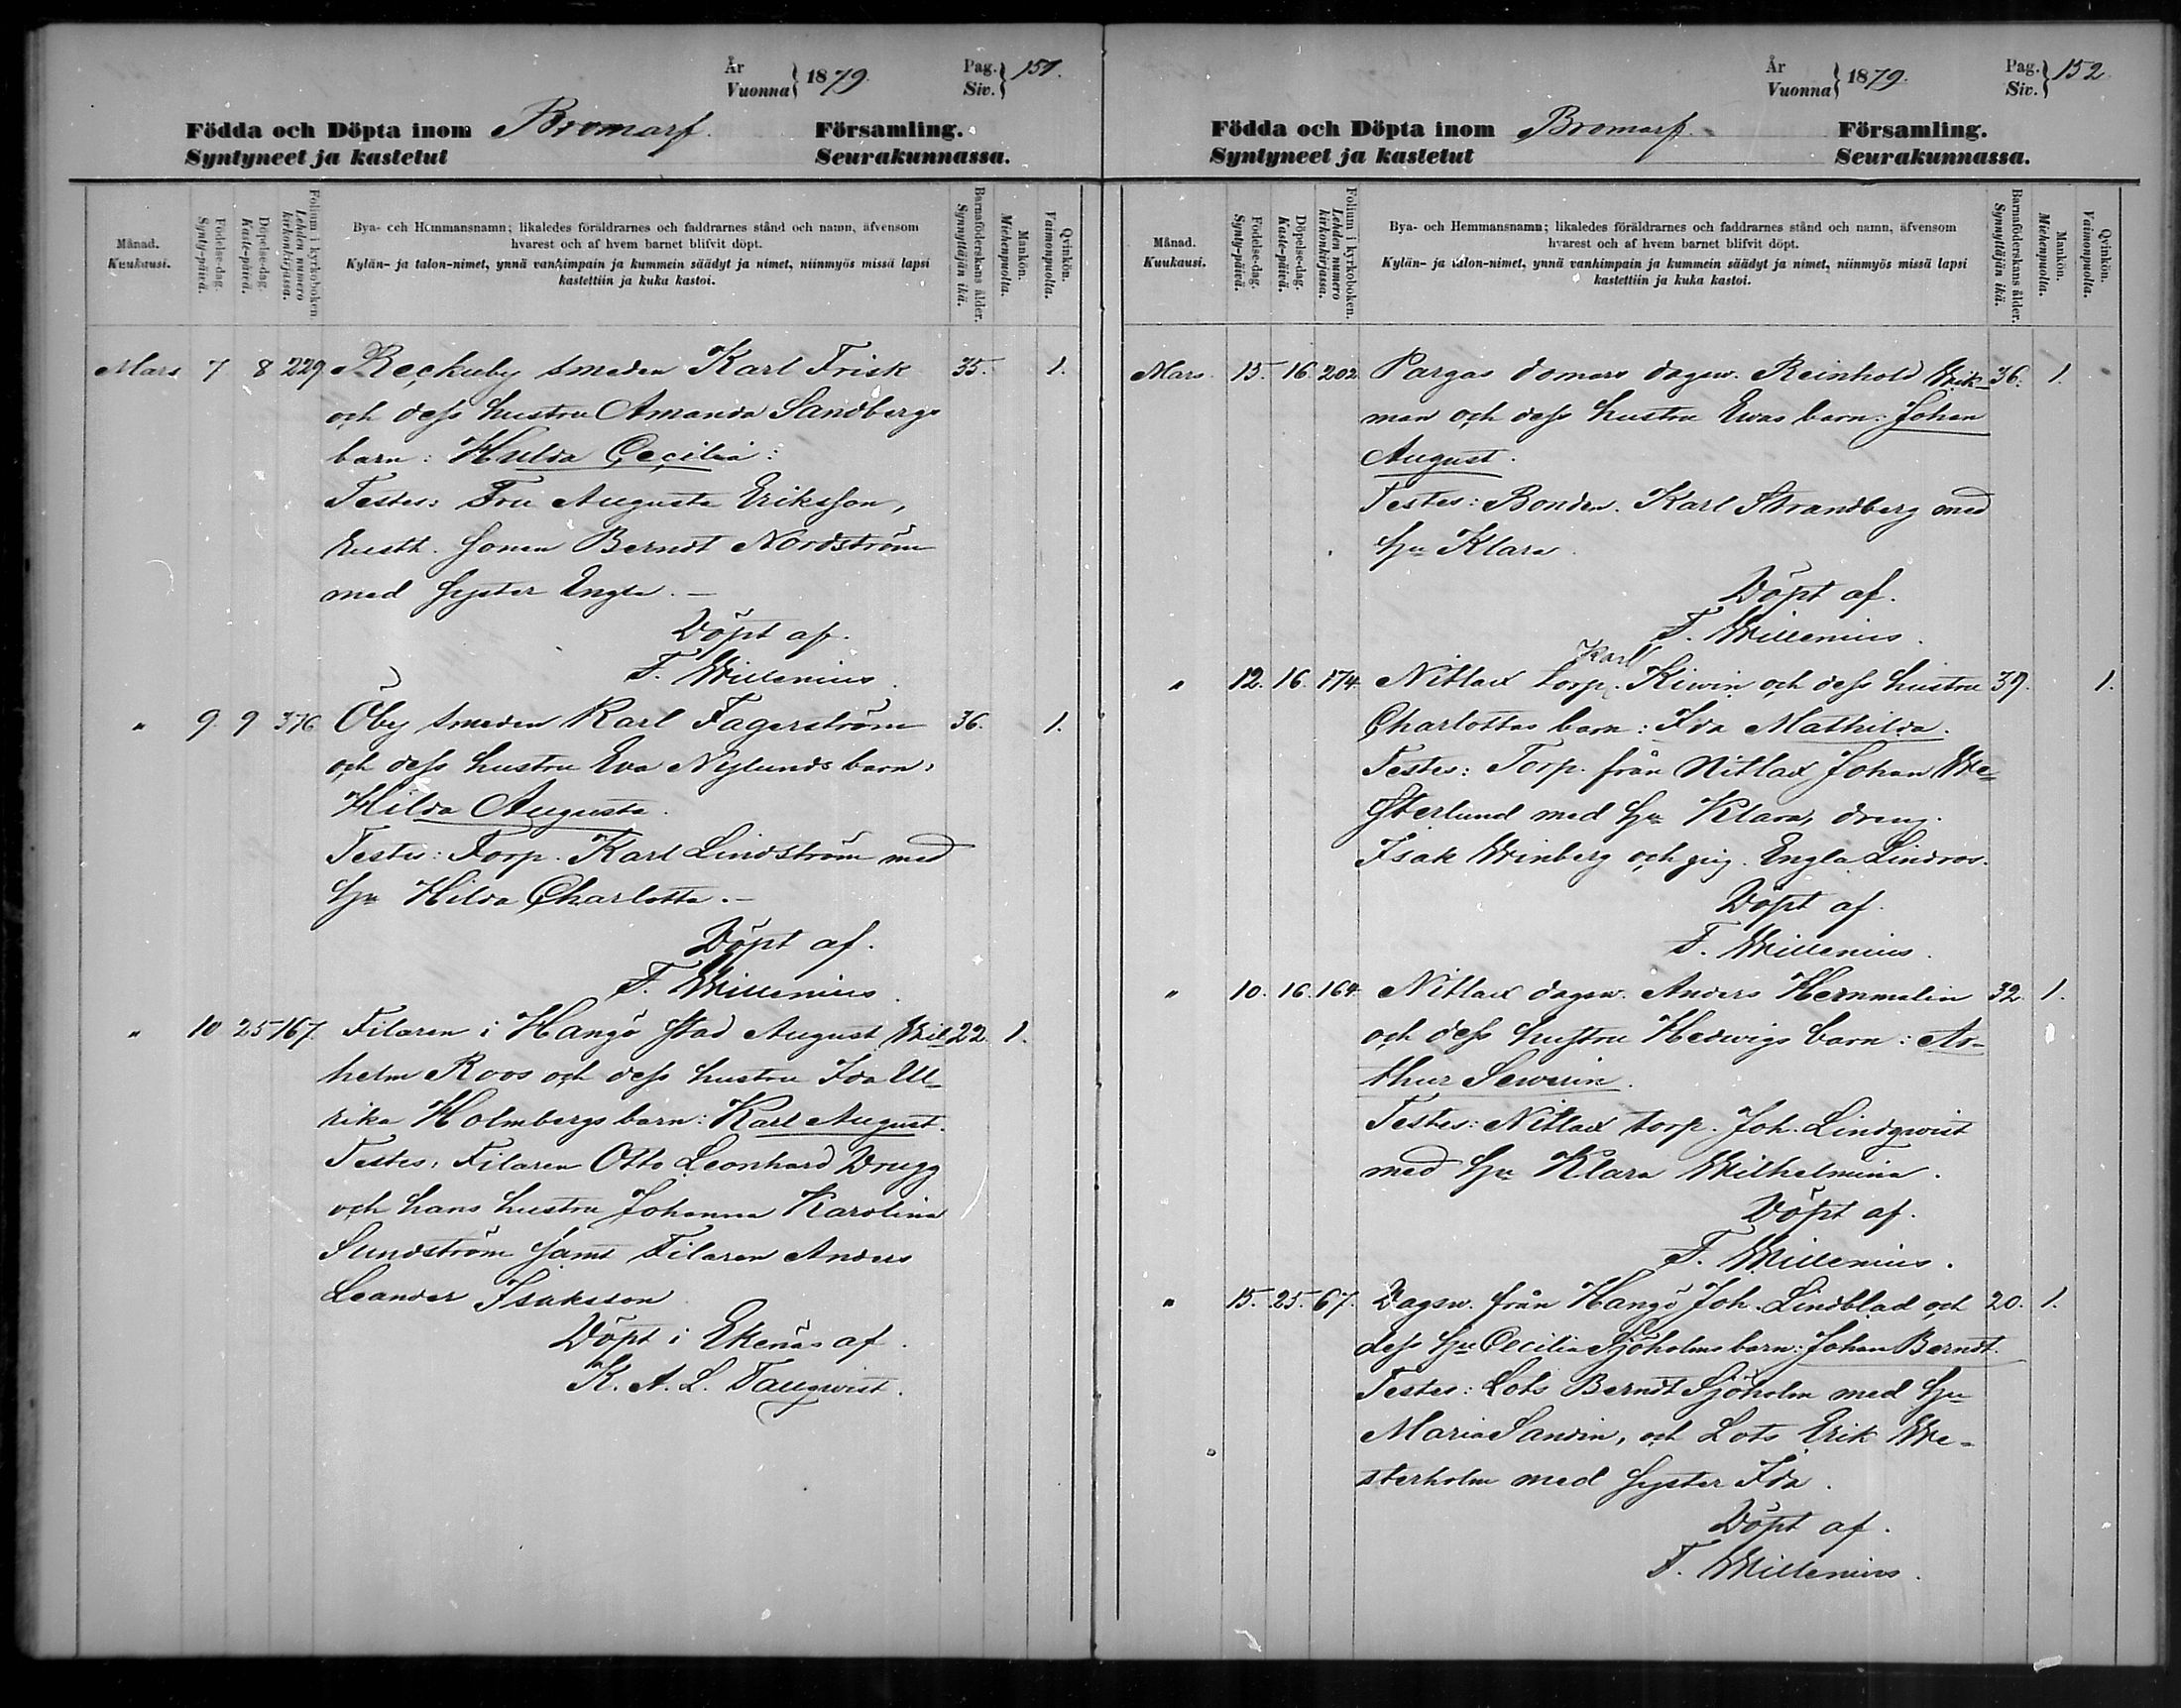 År
Vuonna } 1879.
Pag.
Siv. } 151.
Födda och Döpta inom Bromarf. Församling.
Syntyneet ja kastetut Seurakunnassa.
Månad.
Kuukausi.
Födelse-dag.
Synty-päivä.
Döpelse-dag.
Kaste-päivä.
Folium i kyrkoboken.
Lehden numero
kirkonkirjassa.
Bya- och Hemmansnamn; likaledes föräldrarnes och faddrarnes stånd och namn, äfvensom
hvarest och af hvem barnet blifvit döpt.
Kylän- ja talon-nimet, ynnä vanhimpain ja kummein säädyt ja nimet, niinmyös missä lapsi
kastettiin ja kuka kastoi.
Barnaföderskans ålder.
Synnyttäjän ikä.
Mankön.
Miehenpuolia.
Qvinkön.
Vaimonpuolia.
Mars 7 8 229 Reckuby smeden Karl Frisk 35. 1.
och dess hustru Amanda Sandbergs
barn: Hulda Cecilia:
Testes: Fru Augusta Eriksson,
Sonen Berndt Nordström
med Syster Engla. —
Döpt af.
F. Willenius.
" 9. 9 376 Öby smeden Karl Fagerström 36. 1.
och dess hustru Eva Nylunds barn:
Hilda Augusta.
Testes: Torp. Karl Lindström med
Hu Hilda Charlotta. —
Döpt af.
F. Willenius.
" 10 25 167. Filaren i Hangö stad August Wil- 22 1.
helm Roos och dess hustru Ida Ul-
rika Holmbergs barn: Karl August.
Testes: Filaren Otto Leonhard Drugg
och hans hustru Johanna Karolina
Sundström samt Filaren Anders
Leander Isaksson
Döpt i Ekenäs af
K. A. L. Taugwist.
År
Vuonna } 1879.
Pag.
Siv. } 152
Födda och Döpta inom Bromarf. Församling.
Syntyneet ja kastetut Seurakunnassa.
Månad.
Kuukausi.
Födelse-dag.
Synty-päivä.
Döpelse-dag.
Kaste-päivä.
Folium i kyrkoboken.
Lehden numero
kirkonkirjassa.
Bya- och Hemmansnamn; likaledes föräldrarnes och faddrarnes stånd och namn, äfvensom
hvarest och af hvem barnet blifvit döpt.
Kylän- ja talon-nimet, ynnä vanhimpain ja kummein säädyt ja nimet, niinmyös missä lapsi
kastettiin ja kuka kastoi.
Barnaföderskans ålder.
Synnyttäjän ikä.
Mankön.
Miehenpuolia.
Qvinkön.
Vaimonpuolia.
Mars. 15. 16. 202 Pargas domars dagsw. Reinhold Wik- 36. 1.
man och dess hustru Evas barn: Johan
August.
Testes: Bonden. Karl Strandberg med
Hu Klara.
Döpt af.
F. Willenius.
Karl
" 12. 16. 174. Nitlax torp. Kiwin och dess hustru 39. 1.
Charlottas barn: Ida Mathilda.
Testes: Torp. från Nitlax Johan We-
sterlund med Hu Klara, dreng.
Isak Winberg och pig. Engla Lindros.
Döpt af.
F. Willenius.
" 10. 16. 164. Nitlax dagsw. Anders Hemmalin 32. 1.
och dess hustru Hedwigs barn: Ar-
thur Sewerin.
Testes: Nitlax torp. Joh. Lindqwist
med Hu Klara Wilhelmina.
Döpt af.
F. Willenius.
" 15. 25. 67. Dagsw. från Hangö Joh. Lindblad och 20. 1.
dess Hu Cecilia Sjöholms barn: Johan Berndt.
Testes: Lots Berndt Sjöholm med Hu
Maria Sandin, och Lots Erik We-
sterholm med Syster Ida.
Döpt af.
F. Willenius.